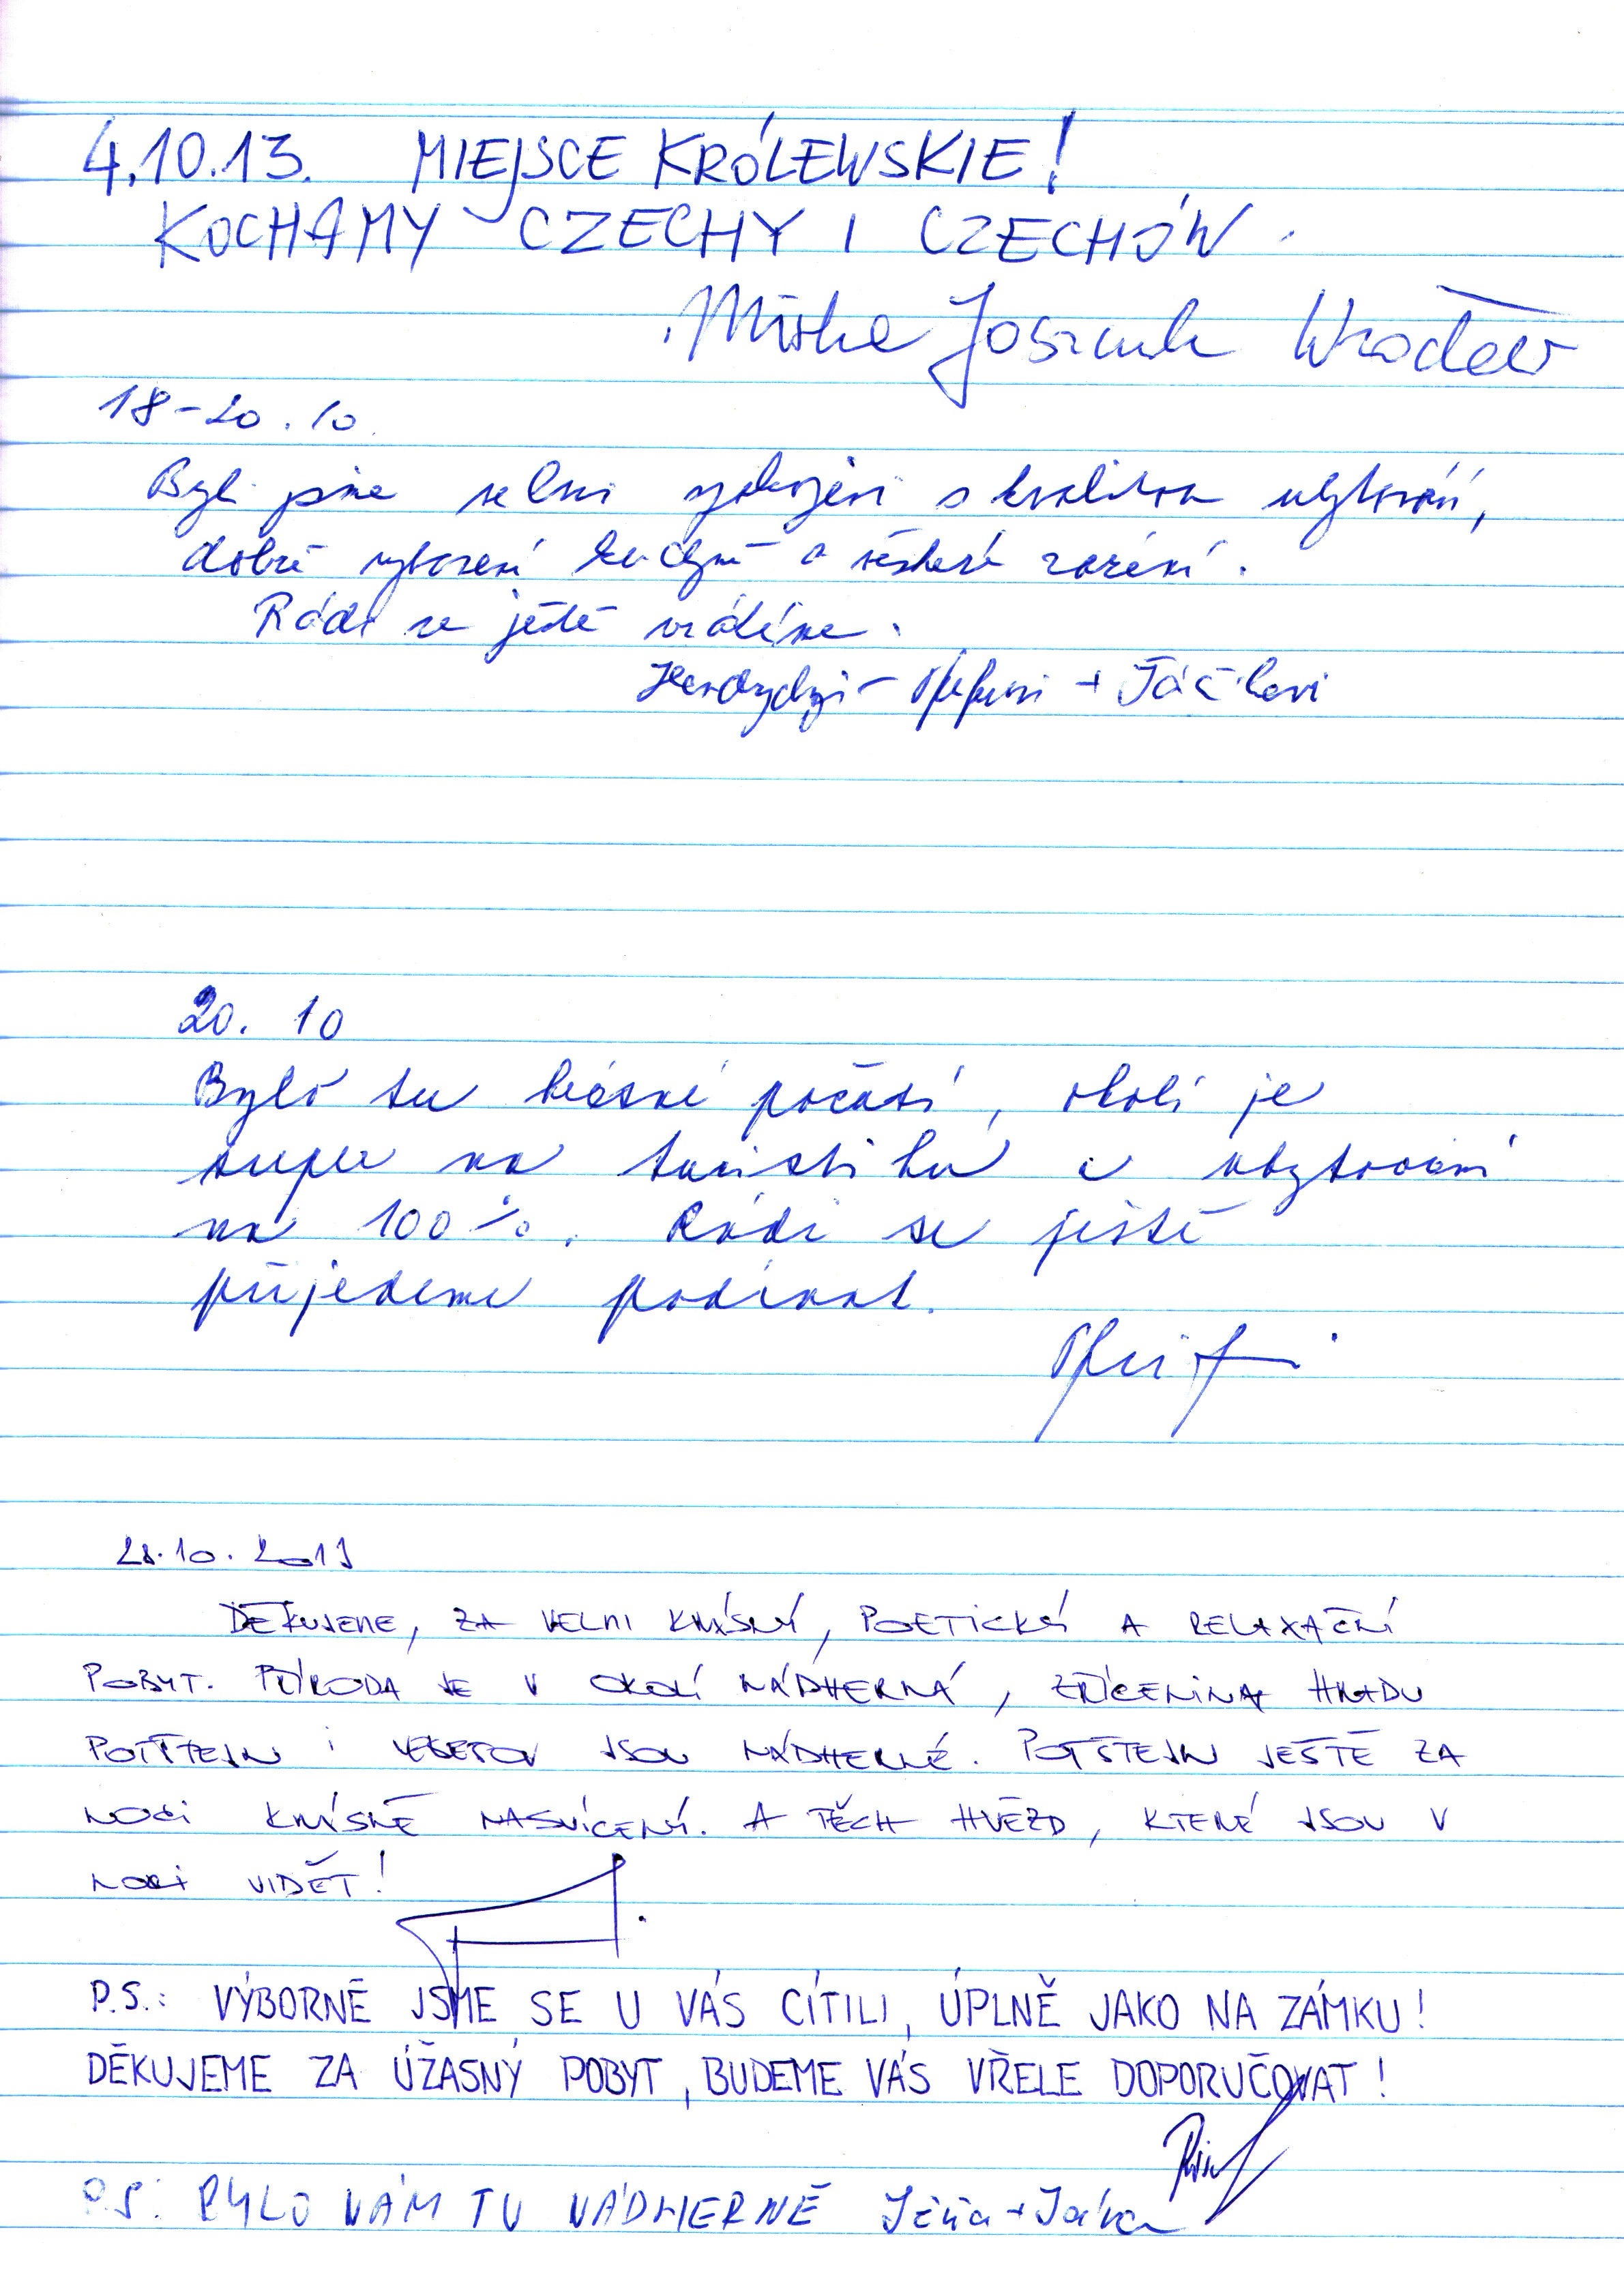 4.10.13. MIEJSCE KRÓLEWSKIE!
KOCHAMY CZECHY I CZECHÓW.
18-20.10.
Byli jsme velmi spokojeni s kvalitou ubytování,
dobré vybavení kuchyně a veškeré zařízení.
Rádi se ještě vrátíme.
20. 10
Bylo tu krásné počasí, okolí je
super na turistiku a ubytování
na 100%. Rádi se ještě
přijedeme podívat.
28.10. 2013
DĚKUJEME, ZA VELMI KRÁSNÝ, POETICKÝ A RELAXAČNÍ
POBYT. PŘÍRODA JE V OKOLÍ NÁDHERNÁ, ZŘÍCENINA HRADU
POTŠTEJN I JSOU NÁDHERNÉ. POTŠTEJN JEŠTĚ ZA
NOCI KRÁSNĚ NASVÍCENÝ. A TĚCH HVĚZD, KTERÉ JSOU V
NOCI VIDĚT!
P.S.: VÝBORNĚ JSME SE U VÁS CÍTILI, ÚPLNĚ JAKO NA ZÁMKU!
DĚKUJEME ZA ÚŽASNÝ POBYT, BUDEME VÁS VŘELE DOPORUČOVAT!
P.S: BYLO NÁM TU NÁDHERNĚ